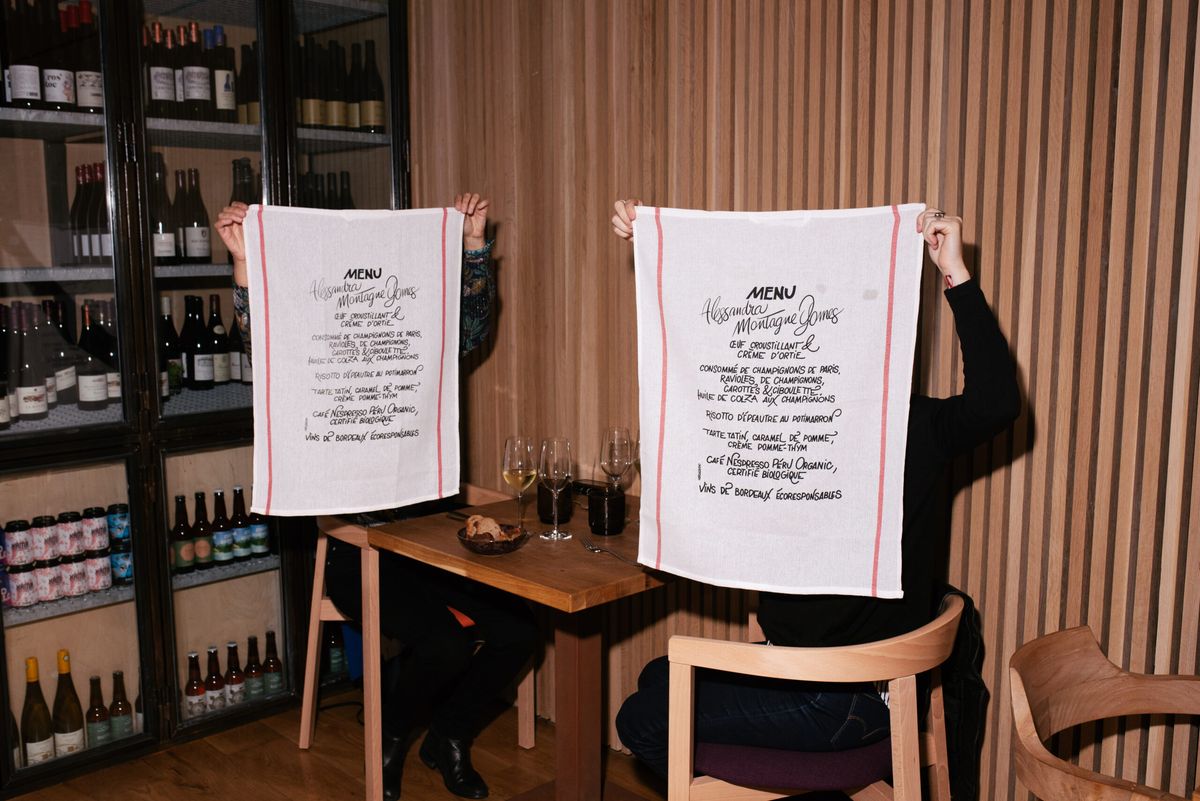 MENU
Alessandra
Montagne Gomes
ŒUF CROUSTILLANT &
CRÈME D'ORTIE
CONSOMMÉ DE CHAMPIGNONS DE PARIS,
RAVIOLES DE CHAMPIGNONS,
CAROTTES & CIBOULETTE,
HUILE DE COLZA AUX CHAMPIGNONS
RISOTTO D'ÉPEAUTRE AU POTIMARRON
TARTE TATIN, CARAMEL DE POMME,
CRÈME POMME-THYM
CAFÉ NESPRESSO PÉRU ORGANIC,
CERTIFIÉ BIOLOGIQUE
VINS DE BORDEAUX ÉCORESPONSABLES
MENU
Alessandra
Montagne Gomes
ŒUF CROUSTILLANT &
CRÈME D'ORTIE
CONSOMMÉ DE CHAMPIGNONS DE PARIS,
RAVIOLES DE CHAMPIGNONS,
CAROTTES & CIBOULETTE,
HUILE DE COLZA AUX CHAMPIGNONS
RISOTTO D'ÉPEAUTRE AU POTIMARRON
TARTE TATIN, CARAMEL DE POMME,
CRÈME POMME-THYM
CAFÉ NESPRESSO PÉRU ORGANIC,
CERTIFIÉ BIOLOGIQUE
VINS DE BORDEAUX ÉCORESPONSABLES